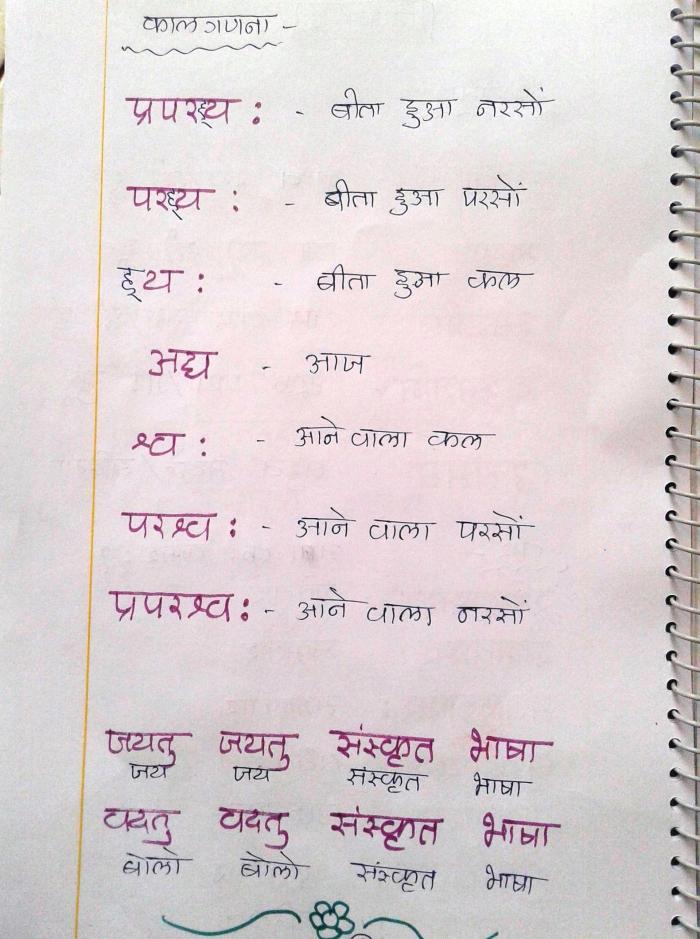 कालगणना -
प्रपरह्य : - बीता हुआ नरसों
परह्य : - बीता हुआ परसों
ह्य : - बीता हुआ कल
अद्य - आज
श्व : - आने वाला कल
परश्व : - आने वाला परसों
प्रपरश्व : - आने वाला नरसों
जयतु जयतु संस्कृत भाषा
जय जय संस्कृत भाषा
वदतु वदतु संस्कृत भाषा
बोलो बोलो संस्कृत भाषा